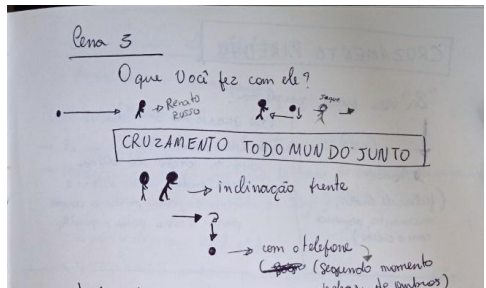 Cena 3
O que você fez com ele?
Renato
Russo
CRUZAMENTO TODO MUNDO JUNTO
inclinação frente
com o telefone
(segundo momento
de ombros)